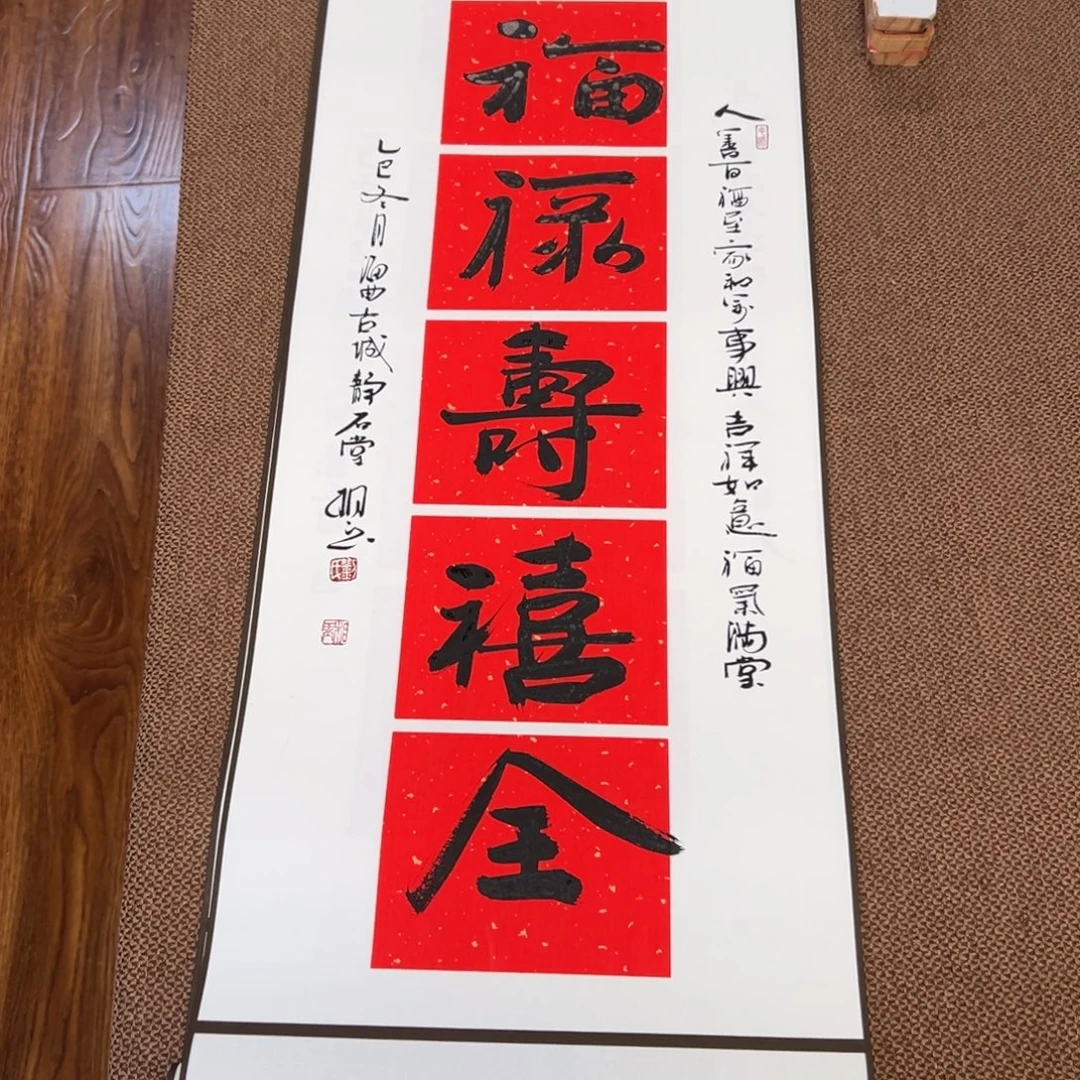 人善百福至家和萬事興吉祥如意福氣滿堂
福祿壽禧全
乙巳冬月古城靜石堂